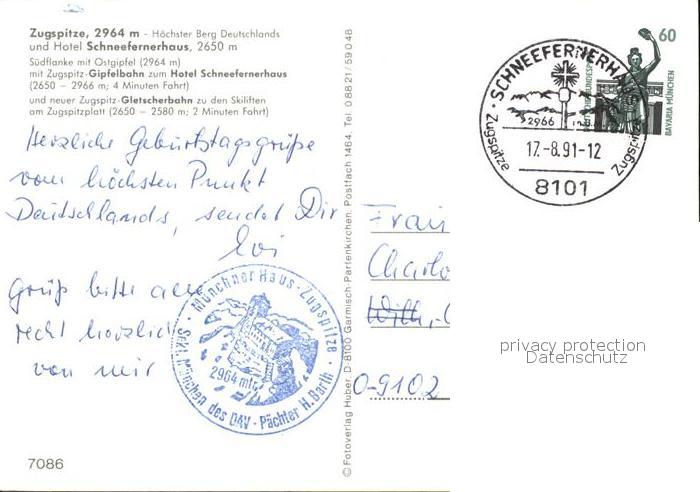 Zugspitze, 2964 m - Höchster Berg Deutschlands
und Hotel Schneefernerhaus, 2650 m
Südflanke mit Ostgipfel (2964 m)
mit Zugspitz-Gipfelbahn zum Hotel Schneefernerhaus
(2650 – 2966 m; 4 Minuten Fahrt)
und neuer Zugspitz-Gletscherbahn zu den Skiliften
am Zugspitzplatt (2650 – 2580 m; 2 Minuten Fahrt)
Herzliche Geburtstagsgrüße
vom höchsten Punkt
Deutschlands, sendet Dir
Evi
Grüß bitte alle
recht herzlich
von mir
Münchner Haus - Zugspitze
2964 mtr.
Sekt. München des DAV - Pächter H. Barth
7086
© Fotoverlag Huber, D-8100 Garmisch-Partenkirchen, Postfach 1464, Tel. 0 88 21 / 5 90 48
SCHNEEFERNERHAUS
2966 m.ü.
Zugspitze
Zugspitze
17.-8.91-12
8101
60
DEUTSCHE BUNDESPOST
BAVARIA MÜNCHEN
Frau
Charlo
O-9102
privacy protection
Datenschutz